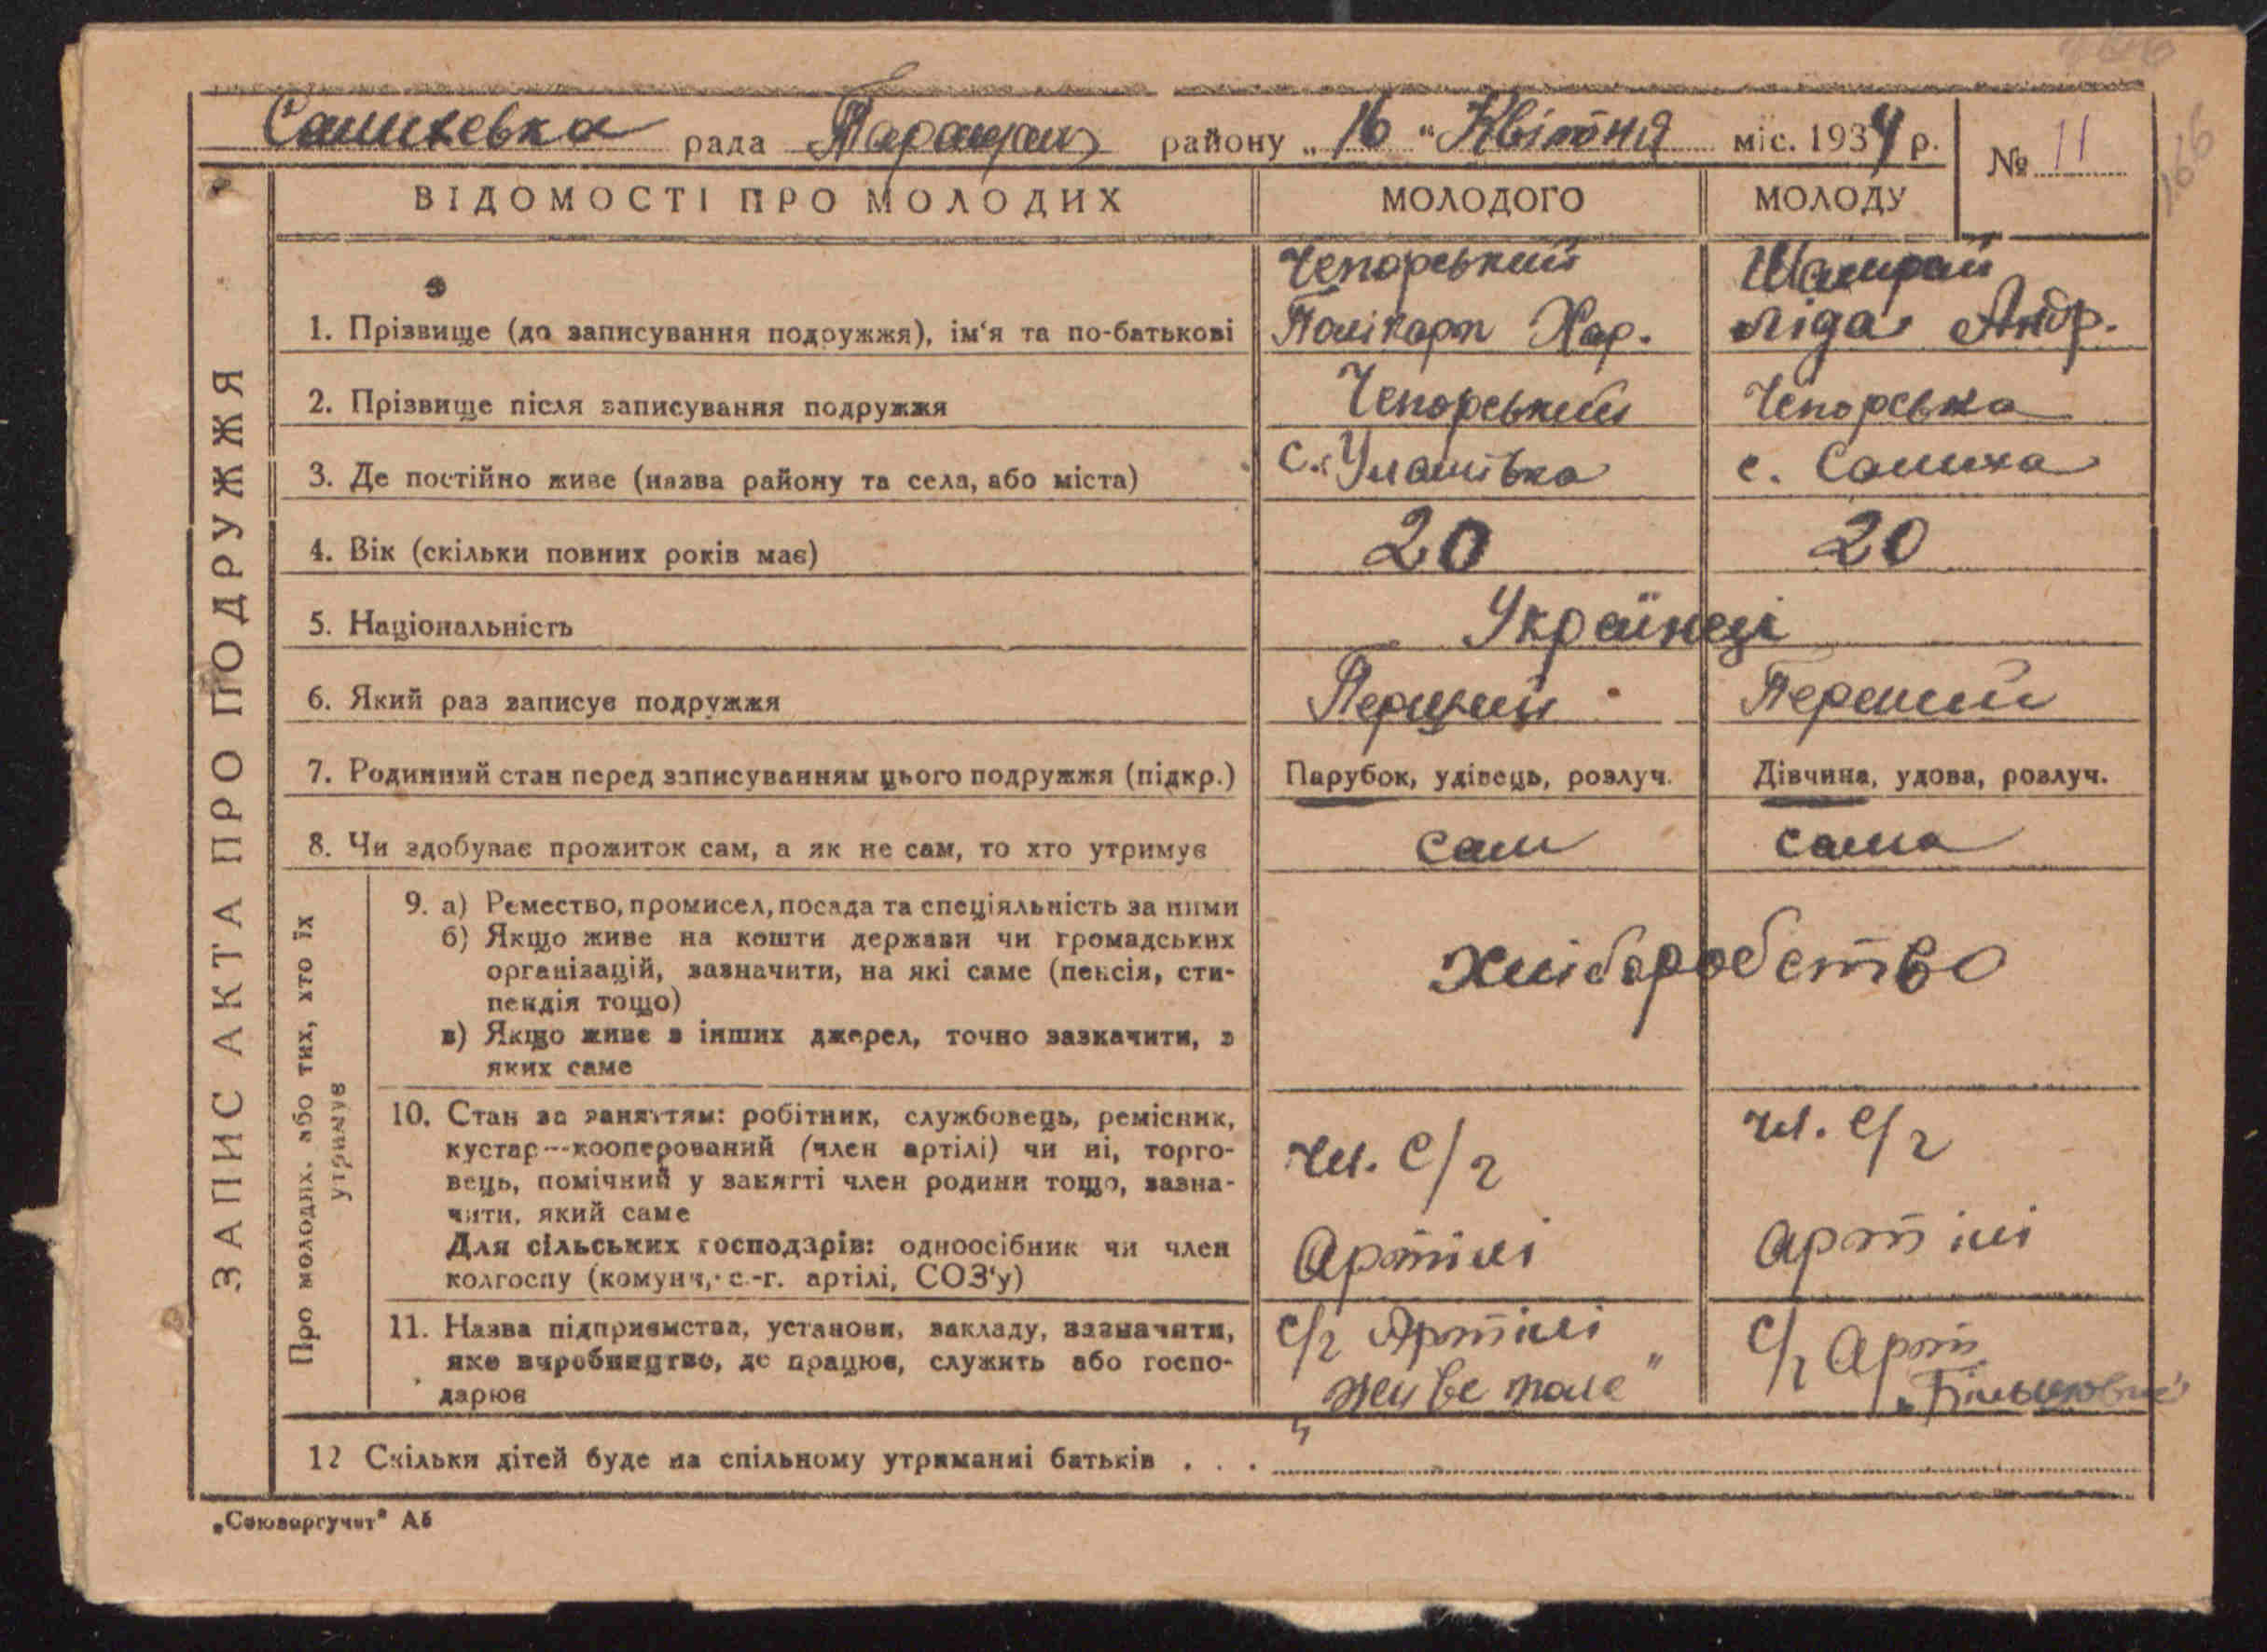 рада району „16 “ Квітня міс. 1934 р.
№ 11
166
ВІДОМОСТІ ПРО МОЛОДИХ
МОЛОДОГО
МОЛОДУ
ЗАПИС АКТА ПРО ПОДРУЖЖЯ
Чепорський
Шамрай
1. Прізвище (до записування подружжя), ім‘я та по-батькові
Полікарп Хар.
Ліда Андр.
2. Прізвище після записування подружжя
Чепорський
Чепорська
3. Де постійно живе (назва району та села, або міста)
с. Улашівка
с. Салиха
4. Вік (скільки повних років має)
20
20
5. Національність
Українеці
6. Який раз записує подружжя
Перший
Перший
7. Родинний стан перед записуванням цього подружжя (підкр.)
Парубок, удівець, розлуч.
Дівчина, удова, розлуч.
8. Чи здобуває прожиток сам, а як не сам, то хто утримує
сам
сама
Про молодих, або тих, хто їх
утримує
9. а) Ремество, промисел, посада та спеціяльність за ними
б) Якщо живе на кошти держави чи громадських
організацій, зазначити, на які саме (пенсія, сти-
пендія тощо)
в) Якщо живе з інших джерел, точно зазначити, з
яких саме
Хліборобство
10. Стан за заняттям: робітник, службовець, ремісник,
кустар—кооперований (член артілі) чи ні, торго-
вець, помічний у занятті член родини тощо, зазна-
чити, який саме
Для сільських господарів: одноосібник чи член
колгоспу (комуни, с.-г. артілі, СОЗ‘у)
чл. с/г
Артілі
чл. с/г
артілі
11. Назва підприємства, установи, закладу, зазначити,
яке виробництво, де працює, служить або госпо-
дарює
с/г Артілі
„Нове поле“
с/г Арт.
„Більшовик“
12 Скільки дітей буде на спільному утриманні батьків . . .
„Союзоргучет“ А5